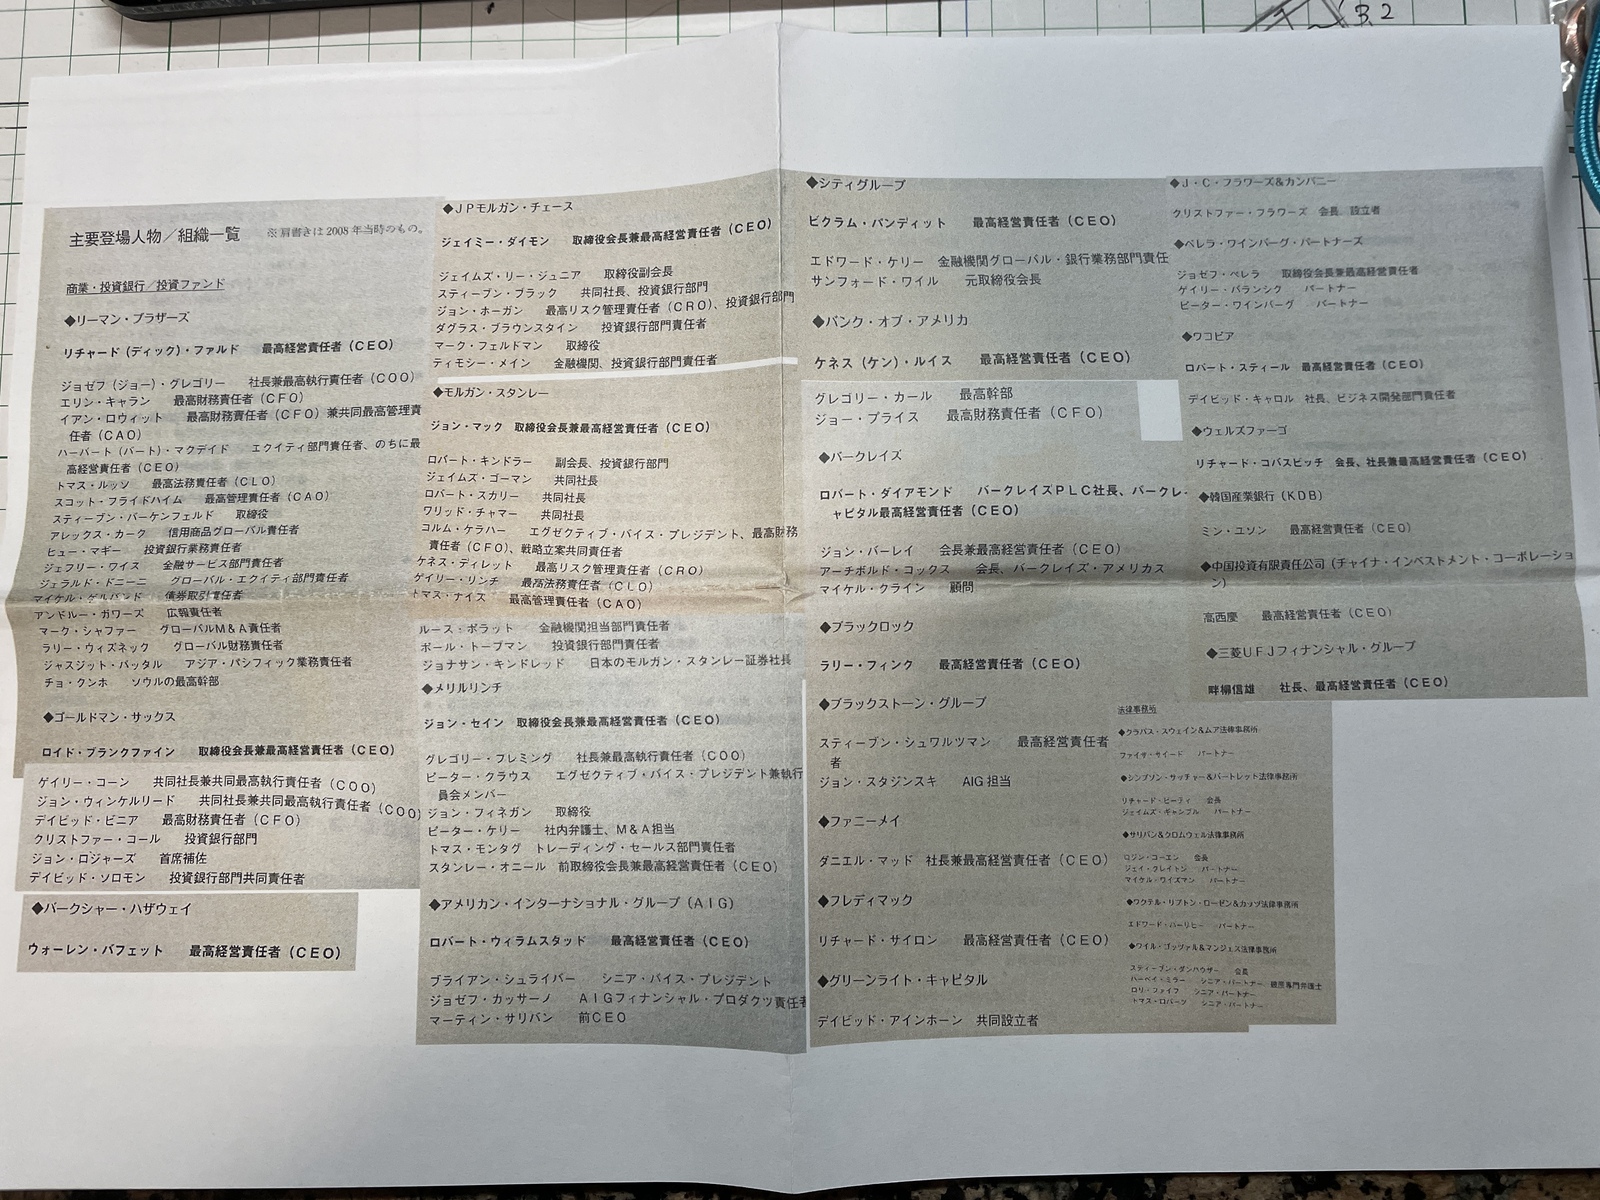 3.2
主要登場人物／組織一覧　※肩書きは2008年当時のもの。
商業・投資銀行／投資ファンド
◆リーマン・ブラザーズ
リチャード（ディック）・ファルド　最高経営責任者（CEO）
ジョゼフ（ジョー）・グレゴリー　社長兼最高執行責任者（COO）
エリン・キャラン　最高財務責任者（CFO）
イアン・ロウィット　最高財務責任者（CFO）兼共同最高管理責
任者（CAO）
ハーバート（バート）・マクデイド　エクイティ部門責任者、のちに最
高経営責任者（CEO）
トマス・ルッソ　最高法務責任者（CLO）
スコット・フライドハイム　最高管理責任者（CAO）
スティーブン・バーケンフェルド　取締役
アレックス・カーク　信用商品グローバル責任者
ヒュー・マギー　投資銀行業務責任者
ジェフリー・ワイス　金融サービス部門責任者
ジェラルド・ドニーニ　グローバル・エクイティ部門責任者
マイケル・ゲルバンド　債券取引責任者
アンドルー・ガワーズ　広報責任者
マーク・シャファー　グローバルM&A責任者
ラリー・ウィズネック　グローバル財務責任者
ジャスジット・バッタル　アジア・パシフィック業務責任者
チョ・クンホ　ソウルの最高幹部
◆ゴールドマン・サックス
ロイド・ブランクファイン　取締役会長兼最高経営責任者（CEO）
ゲイリー・コーン　共同社長兼共同最高執行責任者（COO）
ジョン・ウィンケルリード　共同社長兼共同最高執行責任者（COO）
デイビッド・ビニア　最高財務責任者（CFO）
クリストファー・コール　投資銀行部門
ジョン・ロジャーズ　首席補佐
デイビッド・ソロモン　投資銀行部門共同責任者
◆バークシャー・ハザウェイ
ウォーレン・バフェット　最高経営責任者（CEO）
◆JPモルガン・チェース
ジェイミー・ダイモン　取締役会長兼最高経営責任者（CEO）
ジェイムズ・リー・ジュニア　取締役副会長
スティーブン・ブラック　共同社長、投資銀行部門
ジョン・ホーガン　最高リスク管理責任者（CRO）、投資銀行部門
ダグラス・ブラウンスタイン　投資銀行部門責任者
マーク・フェルドマン　取締役
ティモシー・メイン　金融機関、投資銀行部門責任者
◆モルガン・スタンレー
ジョン・マック　取締役会長兼最高経営責任者（CEO）
ロバート・キンドラー　副会長、投資銀行部門
ジェイムズ・ゴーマン　共同社長
ロバート・スカリー　共同社長
ワリッド・チャマー　共同社長
コルム・ケラハー　エグゼクティブ・バイス・プレジデント、最高財務
責任者（CFO）、戦略立案共同責任者
ケネス・ディレット　最高リスク管理責任者（CRO）
ゲイリー・リンチ　最高法務責任者（CLO）
トマス・ナイス　最高管理責任者（CAO）
ルース・ポラット　金融機関担当部門責任者
ポール・トーブマン　投資銀行部門責任者
ジョナサン・キンドレッド　日本のモルガン・スタンレー証券社長
◆メリルリンチ
ジョン・セイン　取締役会長兼最高経営責任者（CEO）
グレゴリー・フレミング　社長兼最高執行責任者（COO）
ピーター・クラウス　エグゼクティブ・バイス・プレジデント兼執行
員会メンバー
ジョン・フィネガン　取締役
ピーター・ケリー　社内弁護士、M&A担当
トマス・モンタグ　トレーディング・セールス部門責任者
スタンレー・オニール　前取締役会長兼最高経営責任者（CEO）
◆アメリカン・インターナショナル・グループ（AIG）
ロバート・ウィラムスタッド　最高経営責任者（CEO）
ブライアン・シュライバー　シニア・バイス・プレジデント
ジョゼフ・カッサーノ　AIGフィナンシャル・プロダクツ責任者
マーティン・サリバン　前CEO
◆シティグループ
ビクラム・パンディット　最高経営責任者（CEO）
エドワード・ケリー　金融機関グローバル・銀行業務部門責任
サンフォード・ワイル　元取締役会長
◆バンク・オブ・アメリカ
ケネス（ケン）・ルイス　最高経営責任者（CEO）
グレゴリー・カール　最高幹部
ジョー・プライス　最高財務責任者（CFO）
◆バークレイズ
ロバート・ダイアモンド　バークレイズPLC社長、バークレ・
ャピタル最高経営責任者（CEO）
ジョン・バーレイ　会長兼最高経営責任者（CEO）
アーチボルド・コックス　会長、バークレイズ・アメリカス
マイケル・クライン　顧問
◆ブラックロック
ラリー・フィンク　最高経営責任者（CEO）
◆ブラックストーン・グループ
スティーブン・シュワルツマン　最高経営責任者
者
ジョン・スタジンスキ　AIG担当
◆ファニーメイ
ダニエル・マッド　社長兼最高経営責任者（CEO）
◆フレディマック
リチャード・サイロン　最高経営責任者（CEO）
◆グリーンライト・キャピタル
デイビッド・アインホーン　共同設立者
◆J・C・フラワーズ&カンパニー
クリストファー・フラワーズ　会長、設立者
◆ペレラ・ワインバーグ・パートナーズ
ジョゼフ・ペレラ　取締役会長兼最高経営責任者（CEO）
ゲイリー・バランシク　パートナー
ピーター・ワインバーグ　パートナー
◆ワコビア
ロバート・スティール　最高経営責任者（CEO）
デイビッド・キャロル　社長、ビジネス開発部門責任者
◆ウェルズファーゴ
リチャード・コバスビッチ　会長、社長兼最高経営責任者（CEO）
◆韓国産業銀行（KDB）
ミン・ユソン　最高経営責任者（CEO）
◆中国投資有限責任公司（チャイナ・インベストメント・コーポレーショ
ン）
高西慶　最高経営責任者（CEO）
◆三菱UFJフィナンシャル・グループ
畔柳信雄　社長、最高経営責任者（CEO）
法律事務所
◆クラバス・スウェイン&ムア法律事務所
ファイザ・サイード　パートナー
◆シンプソン・サッチャー&バートレット法律事務所
リチャード・ビーティ　会長
ジェイムズ・ギャンブル　パートナー
◆サリバン&クロムウェル法律事務所
ロジン・コーエン　会長
ジェイ・クレイトン　パートナー
マイケル・ワイズマン　パートナー
◆ワクテル・リプトン・ローゼン&カッツ法律事務所
エドワード・ハーリヒー　パートナー
◆ワイル・ゴッツァル&マンジェス法律事務所
スティーブン・ダンハウザー　会長
ハーベイ・ミラー　シニア・パートナー　破産専門弁護士
ロリー・ファイフ　シニア・パートナー
トマス・ロバーツ　シニア・パートナー